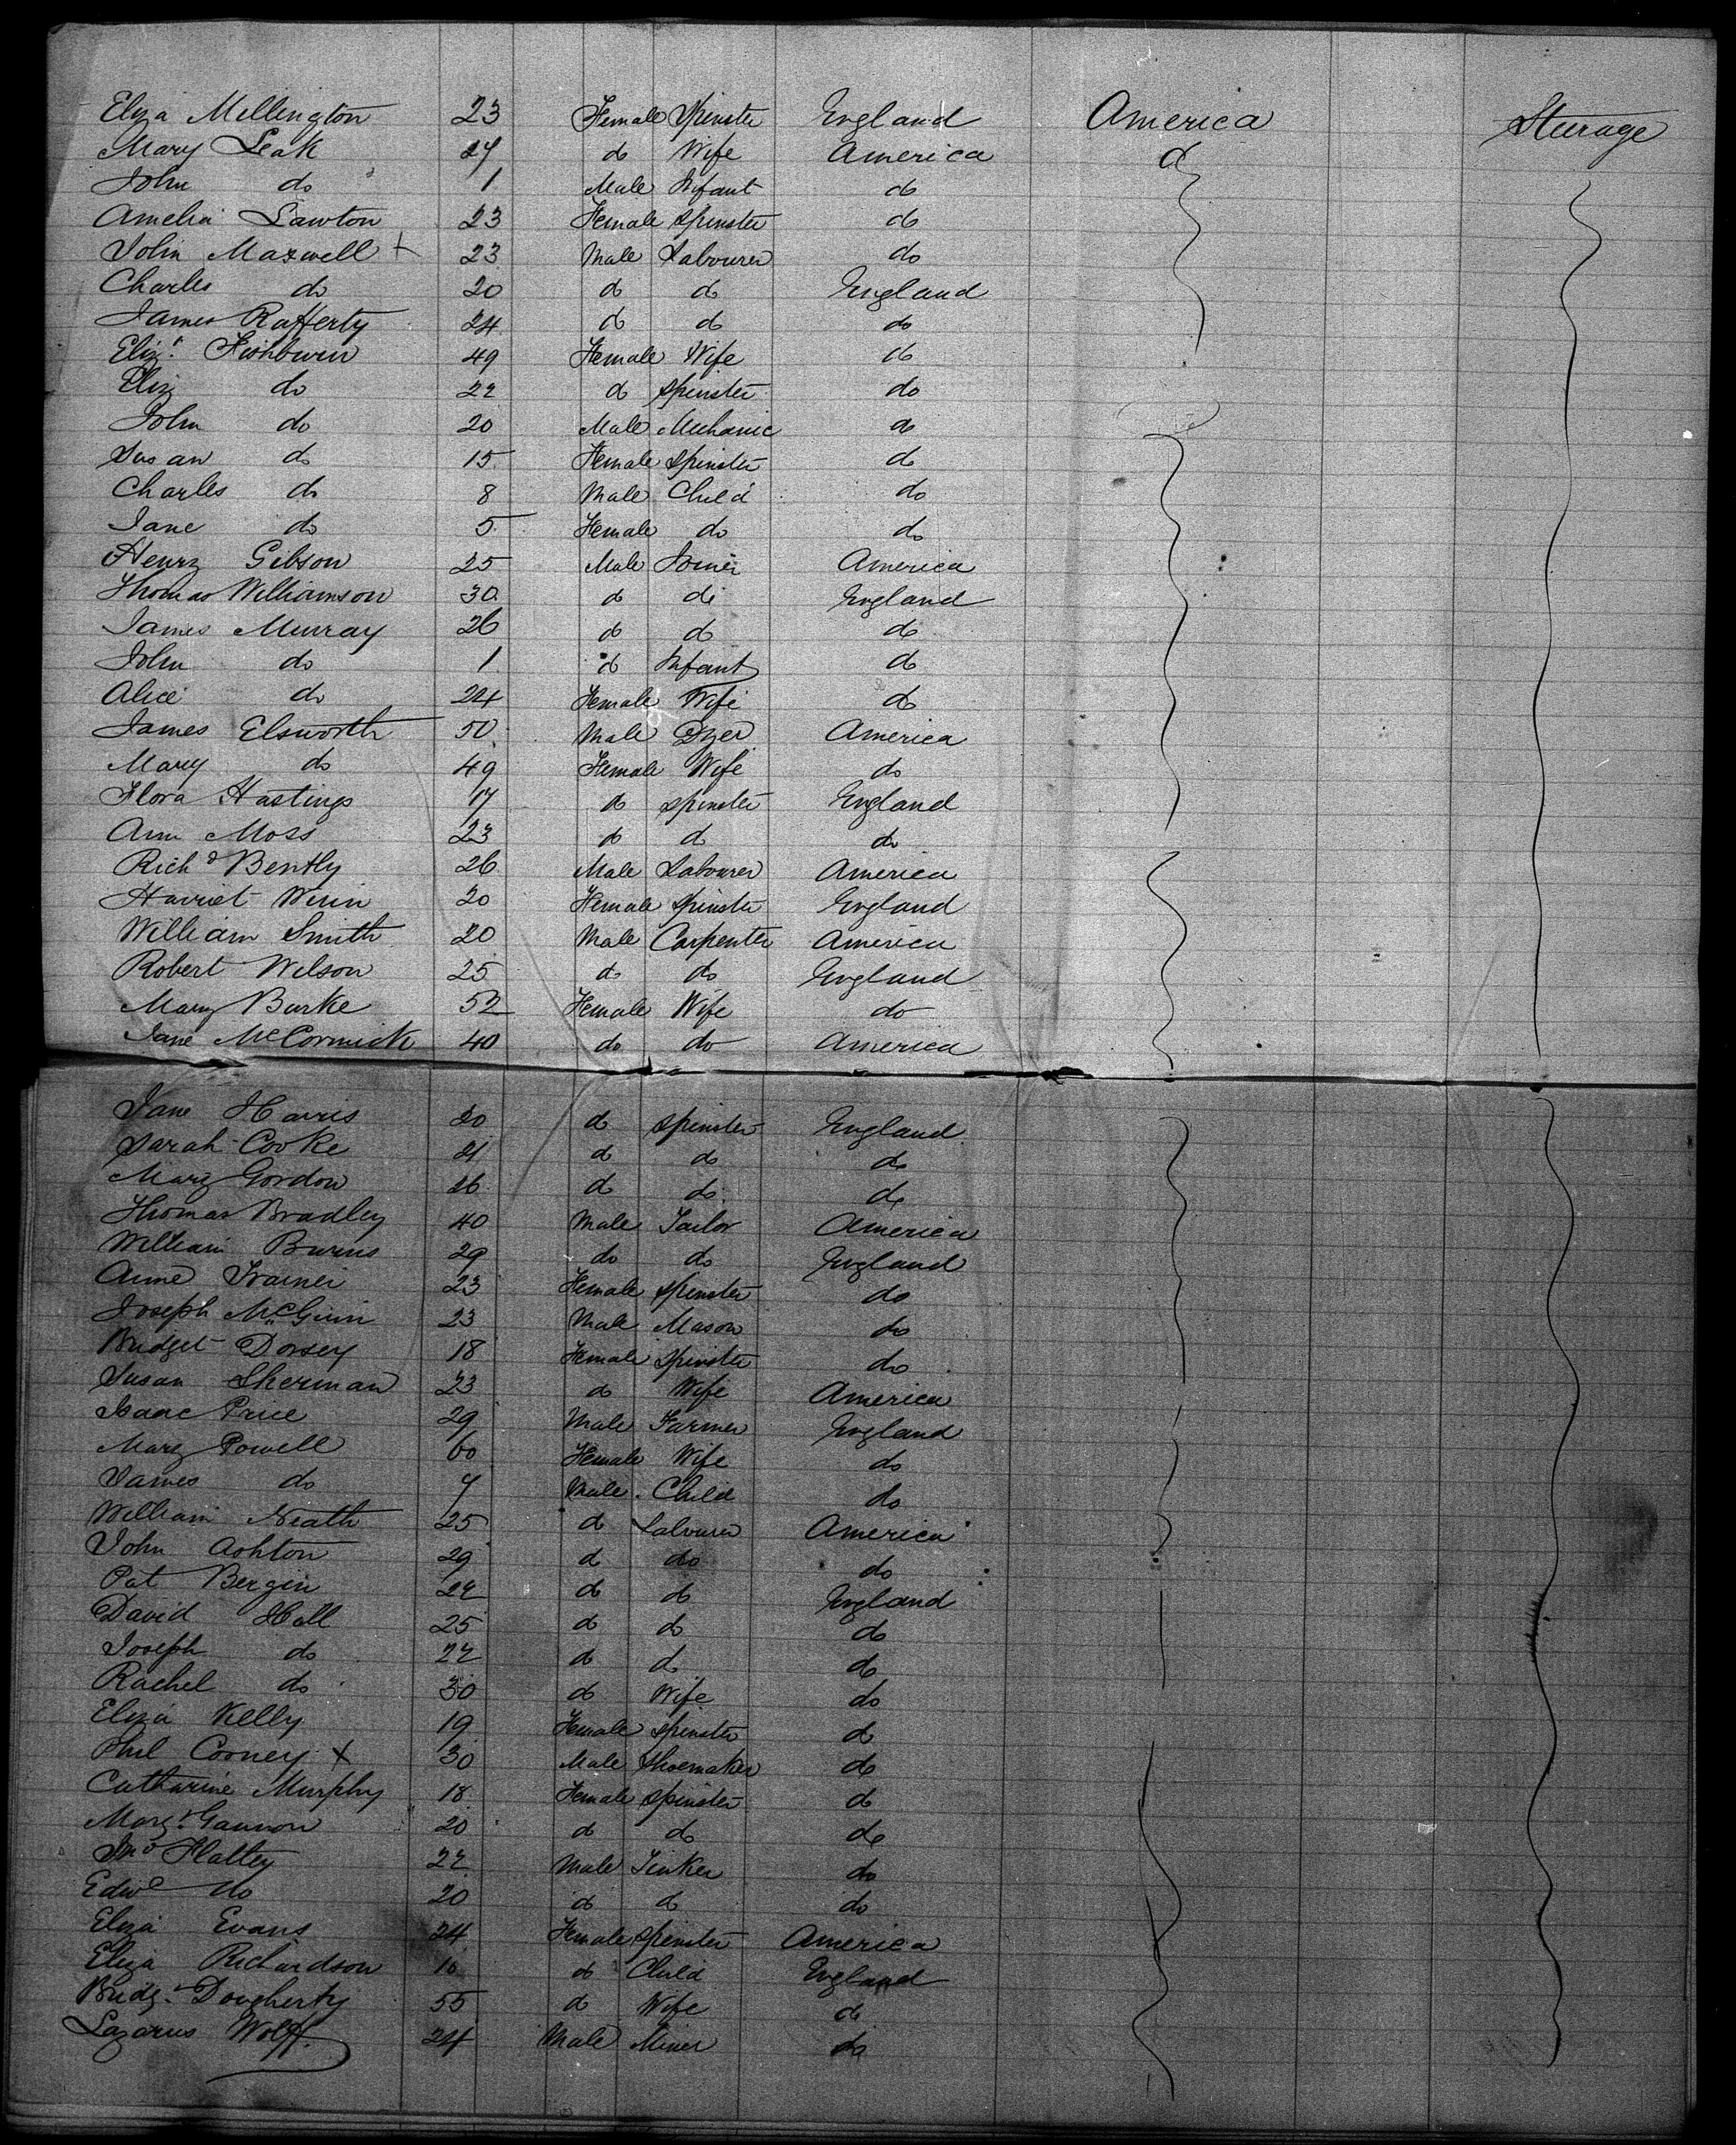 Eliza Millington 23 Female Spinster England America Sterage
Mary Leak 27 do Wife America do
John do 1 Male Infant do
Amelia Lawton 23 Female Spinster do
John Maxwell + 23 Male Labourer do
Charles do 20 do do England
James Rafferty 24 do do do
Eliz.th Fishbwin 49 Female Wife do
Eliz do 22 do Spinster do
John do 20 Male Mechanic do
Susan do 15 Female Spinster do
Charles do 8 Male Child do
Jane do 5 Female do do
Henry Gibson 25 Male Joiner America
Thomas Williamson 30 do do England
James Murray 26 do do do
John do 1 do Infant do
Alice do 24 Female Wife do
James Elsworth 50 Male Dyer America
Mary do 49 Female Wife do
Flora Hastings 17 do Spinster England
Ann Moss 23 do do do
Richd Bently 26 Male Labourer America
Harriet 20 Female Spinster England
William Smith 20 Male Carpenter America
Robert Wilson 25 do do England
Mary Burke 52 Female Wife do
Jane McCormick 40 do do America
Jane Harris 20 do Spinster England
Sarah Cooke 21 do do do
Mary Gordon 26 do do do
Thomas Bradley 40 Male Tailor America
William Burns 29 do do England
Anne Trainer 23 Female Spinster do
Joseph McGinn 23 Male Mason do
Bridget Dorsey 18 Female Spinster do
Susan Sherman 23 do Wife America
Isaac Price 29 Male Farmer England
Mary Powell 60 Female Wife do
James do 7 Male Child do
William Neath 25 do Labourer America
John Ashton 29 do do do
Pat Bergin 22 do do England
David Hall 25 do do do
Joseph do 22 do do do
Rachel do 30 do Wife do
Eliza Kelly 19 Female Spinster do
Phil Corney X 30 Male Shoemaker do
Catharine Murphy 18 Female Spinster do
Marg.t Gannon 20 do do do
Jno Flattey 22 Male Tinker do
Edwd do 20 do do do
Eliza Evans 24 Female Spinster America
Eliza Richardson 10 do Child England
Bridg.t Dougherty 55 do Wife do
Lazarus Wolff. 24 Male Miner do